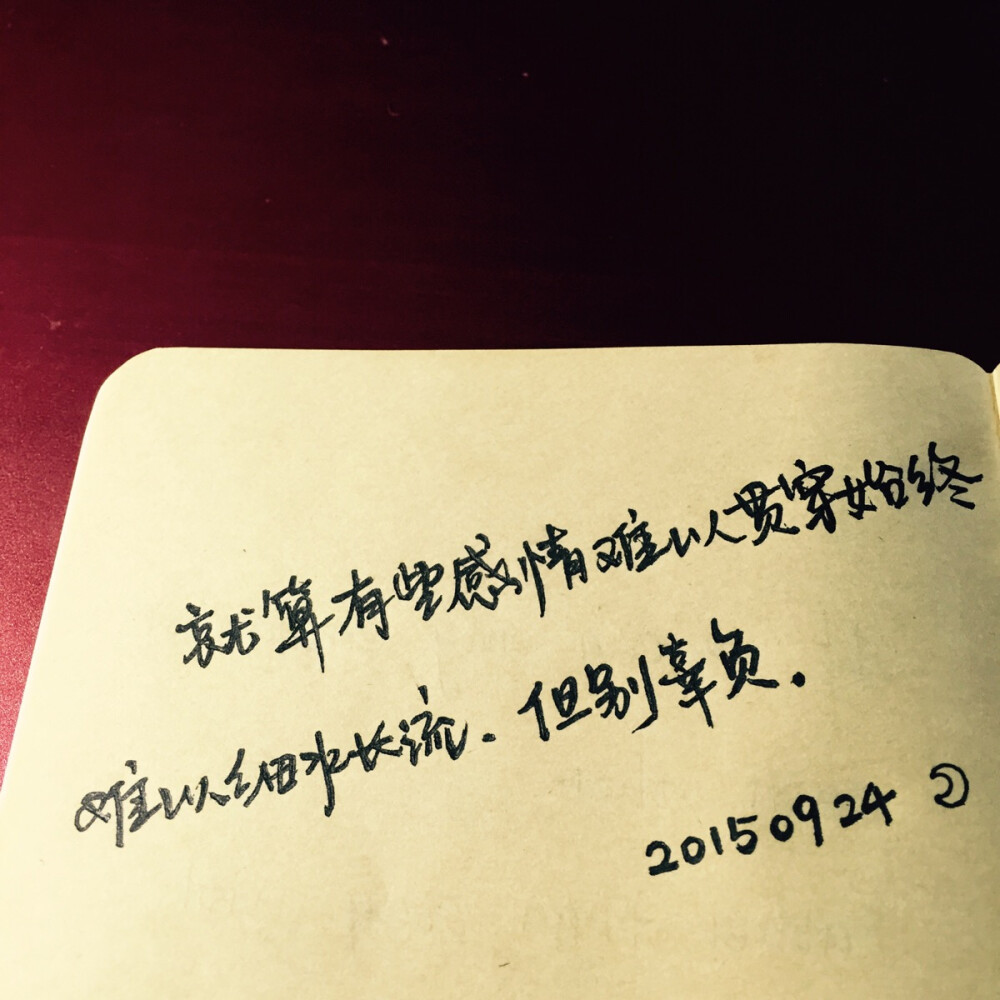 就算有些感情难以贯穿始终
难以细水长流.但别辜负.
20150924